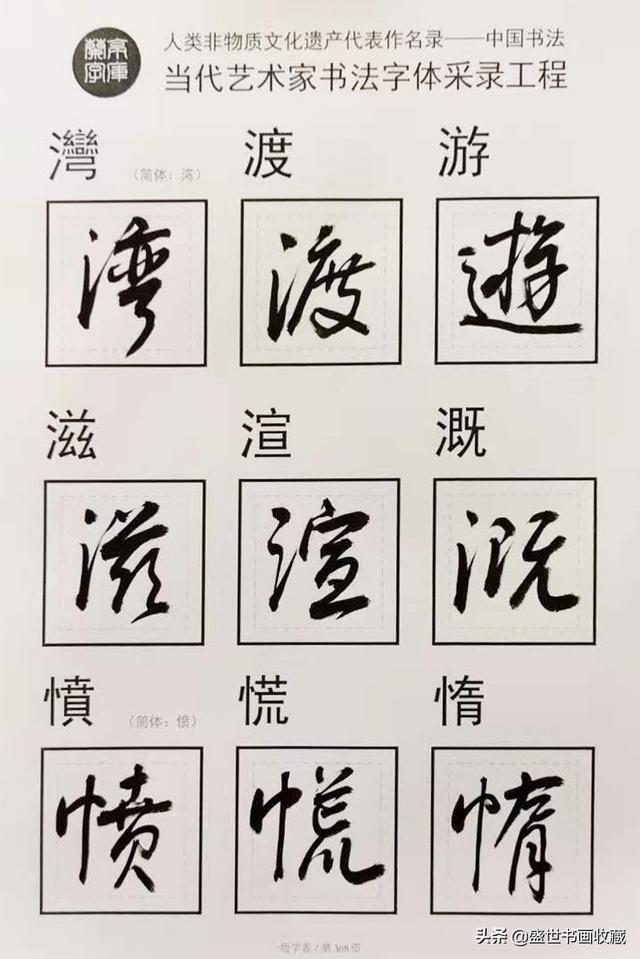 蘭亭
字庫
人类非物质文化遗产代表作名录——中国书法
当代艺术家书法字体采录工程
灣 （简体：湾） 渡 游
湾 渡 遊
滋 渲 溉
滋 渲 溉
憤 （简体：愤） 慌 惰
愤 慌 惰
一级字表 / 第308页
头条 @盛世书画收藏